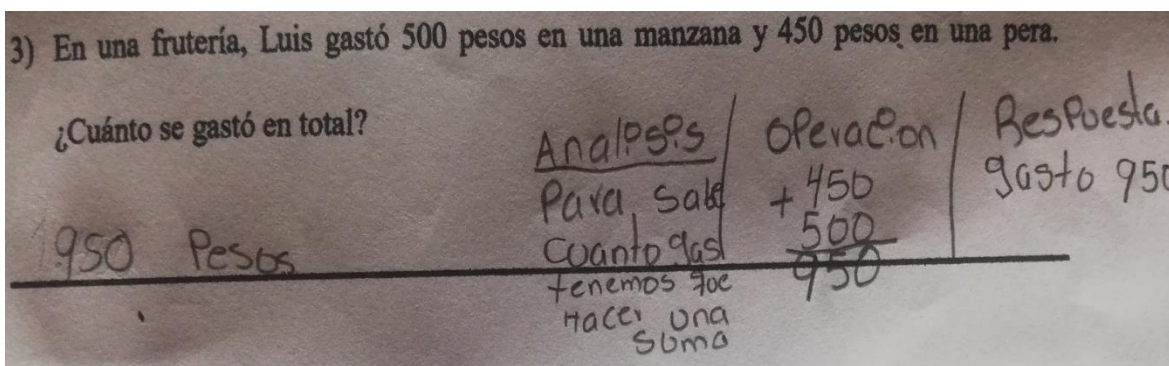 3) En una frutería, Luis gastó 500 pesos en una manzana y 450 pesos en una pera.
¿Cuánto se gastó en total?
950 Pesos
Analisis
Para sabe
cuanto gas
tenemos que
Hacer una
suma
Operacion
+ 450
500
950
Respuesta
gasto 950